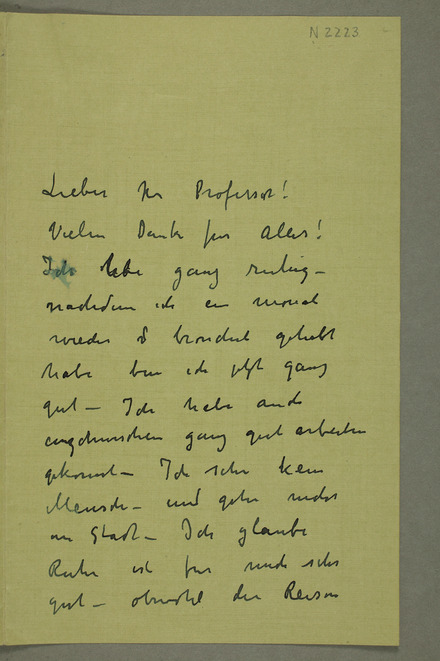 N 2223
Lieber Hr Professor!
Vielen Dank für Alles!
Ich lebe ganz ruhig –
nachdem ich ein monat
wieder gehabt
habe bin ich jetzt ganz
gut – Ich habe auch
ganz gut arbeiten
gekonnt – Ich sehe kein
Mensch – und gehe nicht
in Stadt – Ich glaube
Ruhe ist für mich sehr
gut – obwohl die